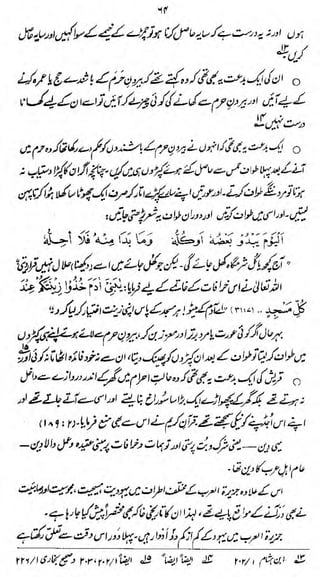 ۶۴
ہوں اور نہ یہ درست ہے کہ سایہ حاصل کرنا ہو تو چمڑے کے خیمے کے سوا کہیں اور سایہ حاصل
کریں ۱۳؎
○ ان کی ایک بدعت یہ بھی تھی کہ وہ کہتے تھے کہ بیرون حرم کے باشندے حج یا عمرہ کرنے
کے لیے آئیں اور بیرون حرم سے کھانے کی کوئی چیز لے کر آئیں تو اسے ان کے لیے کھانا
درست نہیں ۱۴؎
○ ایک بدعت یہ بھی تھی کہ انہوں نے بیرون حرم کے باشندوں کو حکم دے رکھا تھا کہ وہ حرم میں
آنے کے بعد پہلا طواف حمس سے حاصل کئے ہوئے کپڑوں ہی میں کریں، چنانچہ اگر ان کا کپڑا دستیاب نہ
ہوتا تو مرد ننگے طواف کرتے اور عورتیں اپنے سارے کپڑے اتار کر صرف ایک چھوٹا سا کھلا ہوا کرتا پہن
لیتیں۔ اور اسی میں طواف کرتیں اور دوران طواف یہ شعر پڑھتی جاتیں:
الیوم یبدو بعضہ او کلہ وما بدا منہ فلا احلہ
"آج کچھ یا کل شرمگاہ کھل جائے گی۔ لیکن جو کھل جائے میں اسے (دیکھنا) حلال نہیں قرار دیتی"
اللہ تعالیٰ نے اس خرافات کے خاتمے کے لیے فرمایا: یٰبَنِیْ اٰدَمَ خُذُوْا زِیْنَتَکُمْ عِنْدَ
کُلِّ مَسْجِدٍ (۳۱:۷) "اے آدم کے بیٹو! ہر مسجد کے پاس اپنی زینت اختیار کر لیا کرو۔"
بہرحال اگر کوئی عورت یا مرد برتر اور معزز بن کر، بیرون حرم سے لائے ہوئے اپنے ہی کپڑوں
میں طواف کر لیتا تو طواف کے بعد ان کپڑوں کو پھینک دیتا، ان سے نہ خود فائدہ اٹھاتا نہ کوئی اور ۱۵؎
○ قریش کی ایک بدعت یہ بھی تھی کہ وہ حالت احرام میں گھر کے اندر دروازے سے داخل
نہ ہوتے تھے بلکہ گھر کے پچھواڑے ایک بڑا سا سوراخ بنا لیتے اور اسی سے آتے جاتے تھے اور
اپنے اس اجڈپنے کو نیکی سمجھتے تھے، قرآن کریم نے اس سے بھی منع فرمایا۔ (۱۸۹:۲)
یہی دین — یعنی شرک و بت پرستی اور توہمات و خرافات پر مبنی عقیدہ و عمل والا دین—
عام اہل عرب کا دین تھا۔
اس کے علاوہ جزیرۃ العرب کے مختلف اطراف میں یہودیت، مسیحیت، مجوسیت اور صابئیت
نے بھی در آنے کے مواقع پا لیے تھے، لہذا ان کا تاریخی خاکہ بھی مختصراً پیش کیا جا رہا ہے۔
جزیرۃ العرب میں یہود کے کم از کم دو ادوار ہیں۔ پہلا دور اس وقت سے تعلق رکھتا ہے
۱۳؎ ابن ہشام ۲۰۲/۱ ۱۴؎ ایضاً ایضاً ۱۵؎ ایضاً ۲۰۲/۱، ۲۰۳، و صحیح بخاری ۲۲۶/۱